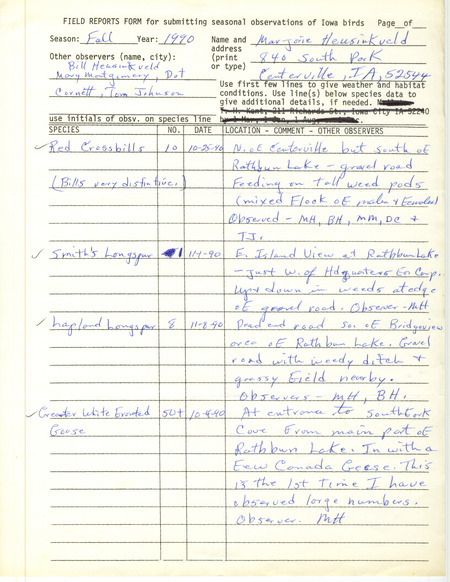 FIELD REPORTS FORM for submitting seasonal observations of Iowa birds Page__of__
Season: Fall Year: 1990 Name and Marjorie Heusinkveld
address 840 South Park
Other observers (name, city): (print
Bill Heusinkveld or type) Centerville, IA, 52544
Mary Montgomery, Dot
Cornett, Tom Johnson
Use first few lines to give weather and habitat
conditions. Use line(s) below species data to
give additional details, if needed.
T. H. Kent, 211 Richards St., Iowa City IA 52240
use initials of obsv. on species line
SPECIES NO. DATE LOCATION - COMMENT - OTHER OBSERVERS
✓Red Crossbills 10 10-25-90 N. of Centerville but south of
Rathbun Lake - gravel road
(Bills very distinctive.) Feeding on tall weed pods
(mixed flock of males & females)
Observed - MH, BH, MM, DC &
TJ.
✓ Smith's Longspur 1 11-1-90 E. Island View at Rathbun Lake
- Just W. of Hdquaters En Corp.
Up & down in weeds at edge
of gravel road. Observer - MH
✓ Lapland Longspur 8 11-8-90 Dead end road So. of Bridgeview
area of Rathbun Lake. Gravel
road with weedy ditch &
grassy field nearby.
Observers - MH, BH.
✓Greater White Fronted 50+ 10-4-90 At entrance to South Fork
Geese Cove from main part of
Rathbun Lake. In with a
few Canada Geese. This
is the 1st time I have
observed large numbers.
Observer. MH